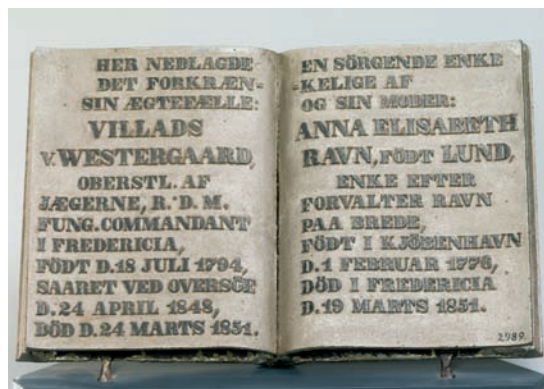 HER NEDLAGDE
DET FORKRÆN-
SIN ÆGTEFÆLLE:
VILLADS
V. WESTERGAARD,
OBERSTL. AF
JÆGERNE, R. D. M.
FUNG. COMMANDANT
I FREDERICIA,
FÖDT D. 18 JULI 1794,
SAARET VED OVERSÖE
D. 24 APRIL 1848,
DÖD D. 24 MARTS 1851.
EN SÖRGENDE ENKE
-KELIGE AF
OG SIN MODER:
ANNA ELISABETH
RAVN, FÖDT LUND,
ENKE EFTER
FORVALTER RAVN
PAA BREDE,
FÖDT I KJÖBENHAVN
D. 1 FEBRUAR 1776,
DÖD I FREDERICIA
D. 19 MARTS 1851.
2989